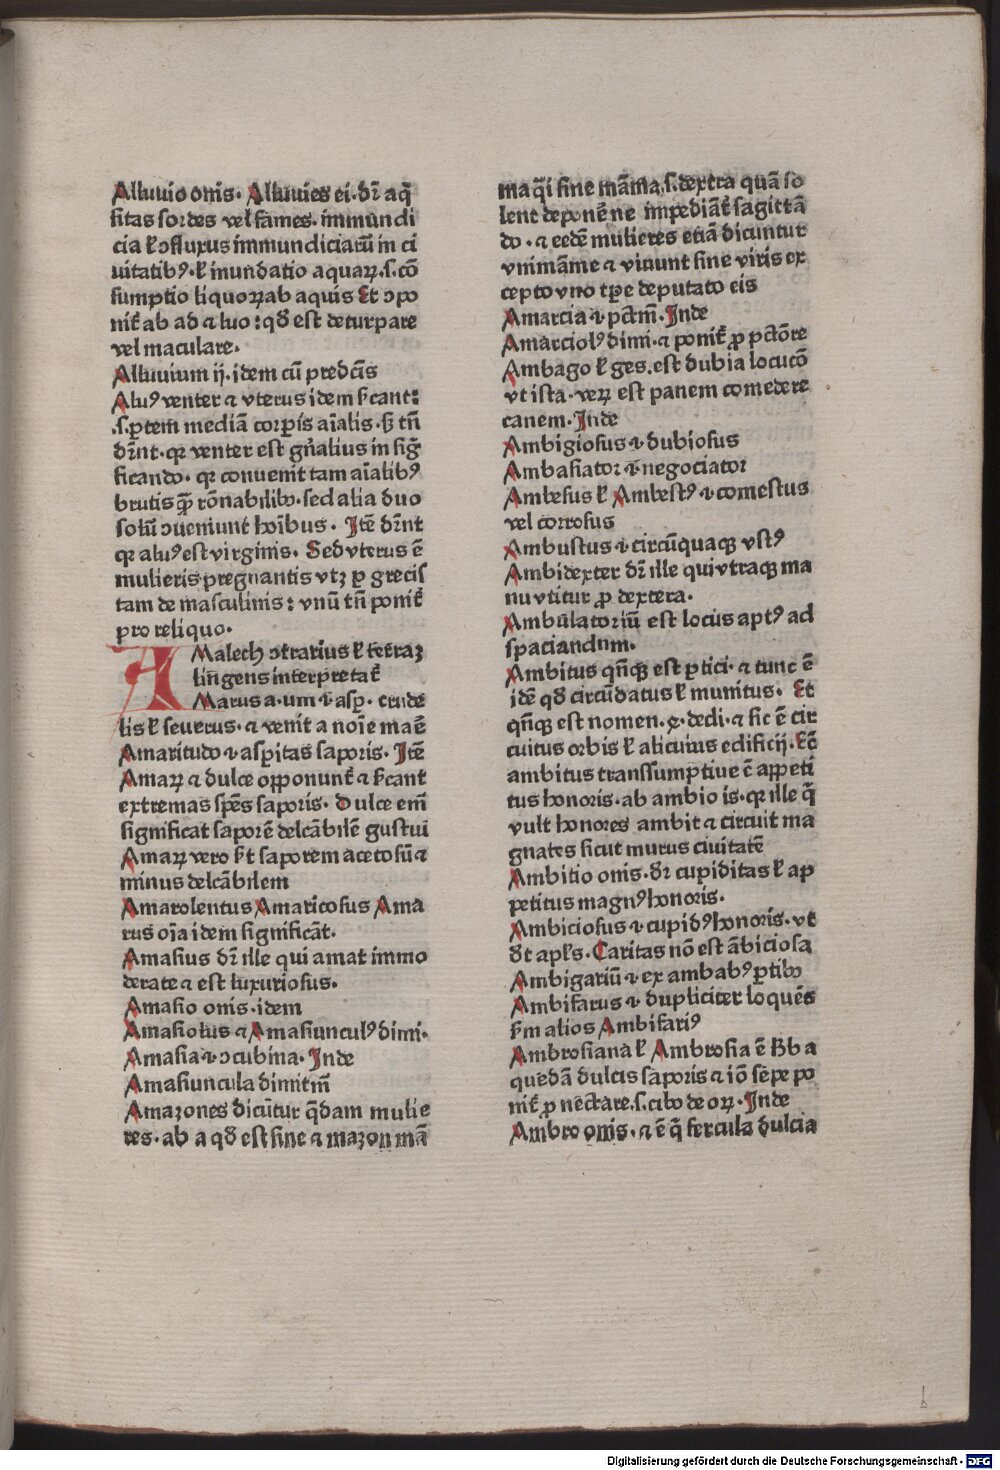 Alluuio onis. Alluuies ei. dr̄ aq̄
sitas sordes vel fames. immundi
cia ł ɔfluxus immundiciaꝝ in ci
uitatibꝰ. ł inundatio aquaꝝ .s. cō
sumptio liquoꝝ ab aquis Et ɔpo
nit᷑ ab ad ⁊ luo: qđ est deturpare
vel maculare.
Alluuium ij. idem cū predc̄is
Aluꝰ venter ⁊ vterus idem sił̄cant:
.s. ꝑtem mediā corꝑis aīalis. ſꝫ tn̄
dr̄nt. qꝛ venter est gn̄alius in siḡ
ficando. qꝛ conuenit tam aīalibꝰ
brutis q̄ꝫ rōnabilibꝰ. sed alia duo
solū ɔueniunt hoībus. Itē dr̄nt
qꝛ aluꝰ est virginis. Sed vterus ē
mulieris pregnantis vtꝫ ꝑ grecis
tam de masculinis: vnū tn̄ ponit᷑
pro reliquo.
AMalech ɔtrarius ł terraꝫ
lingens interpretat᷑
Marus a. um .i. asꝑ. crude
lis ł seuerus. ⁊ venit a noīe ma ē
Amaritudo .i. asꝑitas saporis. Itē
Amaꝝ ⁊ dulce opponunt᷑ ⁊ sił̄cant
extremas spēs saporis. Dulce em̄
significat saporē delcābilē gustui
Amaꝝ vero sił̄t saporem acetosū ⁊
minus delcābilem
Amarolentus Amaricosus Ama
rus oīa idem significāt.
Amasius dr̄ ille qui amat immo
derate ⁊ est luxuriosus.
Amasio onis. idem
Amasiolus ⁊ Amasiunculꝰ dimi.
Amasia .i. ɔcubina. Inde
Amasiuncula dimitm̄
Amazones dicūtur q̄dam mulie
res. ab a qđ est sine ⁊ mazon mā
ma q̄i sine māma .s. dextra quā so
lent deponē ne impediāt᷑ sagittā
do. ⁊ eedē mulieres etiā dicuntur
vnimāme ⁊ viuunt sine viris ex
cepto vno tꝑe deputato eis
Amarcia .i. pctm̄. Inde
Amarciolꝰ dimi. ⁊ ponit᷑ ꝓ pctōre
Ambago ł ges. est dubia locucō
vt ista. veꝝ est panem comedere
canem. Inde
Ambigiosus .i. dubiosus
Ambasiator .i. negociator
Ambesus ł Ambestꝰ .i. comestus
vel corrosus
Ambustus .i. circūquaqꝫ vstꝰ
Ambidexter dr̄ ille qui vtraqꝫ ma
nu vtitur ꝓ dextera.
Ambulatoriū est locus aptꝰ ad
spaciandum.
Ambitus qn̄qꝫ est ꝑtici. ⁊ tunc ē
idē qđ circūdatus ł munitus. Et
qn̄qꝫ est nomen .q. decli. ⁊ sic ē cir
cuitus orbis ł alicuius edificij. Eciā
ambitus transsumptiue ē appeti
tus honoris. ab ambio is. qꝛ ille q̄
vult honores ambit ⁊ circuit ma
gnates sicut murus ciuitatē
Ambitio onis. dr̄ cupiditas ł ap
petitus magnꝰ honoris.
Ambiciosus .i. cupidꝰ honoris. vt
dt apłs. Caritas nō est ābiciosa
Ambigariū .i. ex ambabꝰ ꝑtibꝰ
Ambifarus .i. dupliciter loquēs
sm̄ alios Ambifariꝰ
Ambrosiana ł Ambrosia ē herba
quedā dulcis saporis ⁊ iō sepe po
nit᷑ ꝓ nectare .s. cibo deoꝝ. Inde
Ambro onis. ⁊ ē q̄ fercula dulcia
Digitalisierung gefördert durch die Deutsche Forschungsgemeinschaft - DFG